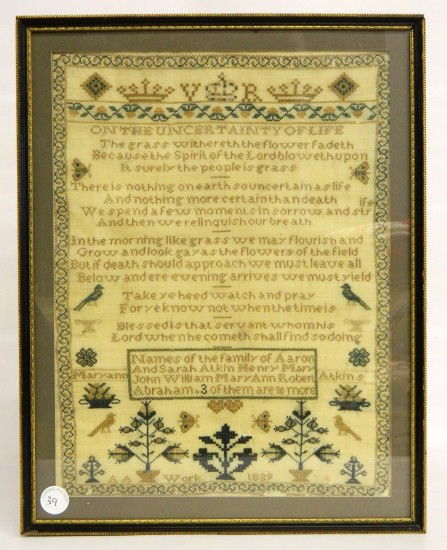 V R
ON THE UNCERTAINTY OF LIFE
The grass withereth the flower fadeth
Because the Spirit of the Lord bloweth upon
It surely the people is grass
There is nothing on earth so uncertain as life
And nothing more certain than death
We spend a few moments in sorrow and str ife
And then we relinquish our breath
In the morning like grass we may flourish and
Grow and look gay as the flowers of the field
But if death should approach we must leave all
Below and ere evening arrives we must yield
Take ye heed watch and pray
For ye know not when the time is
Blessed is that servant whom his
Lord when he cometh shall find so doing
Names of the family of Aaron
And Sarah Atkin Henry Mary
Maryann John William Mary Ann Robert Atkin s
Abraham 3 of them are no more
A A Work 1839 A
39